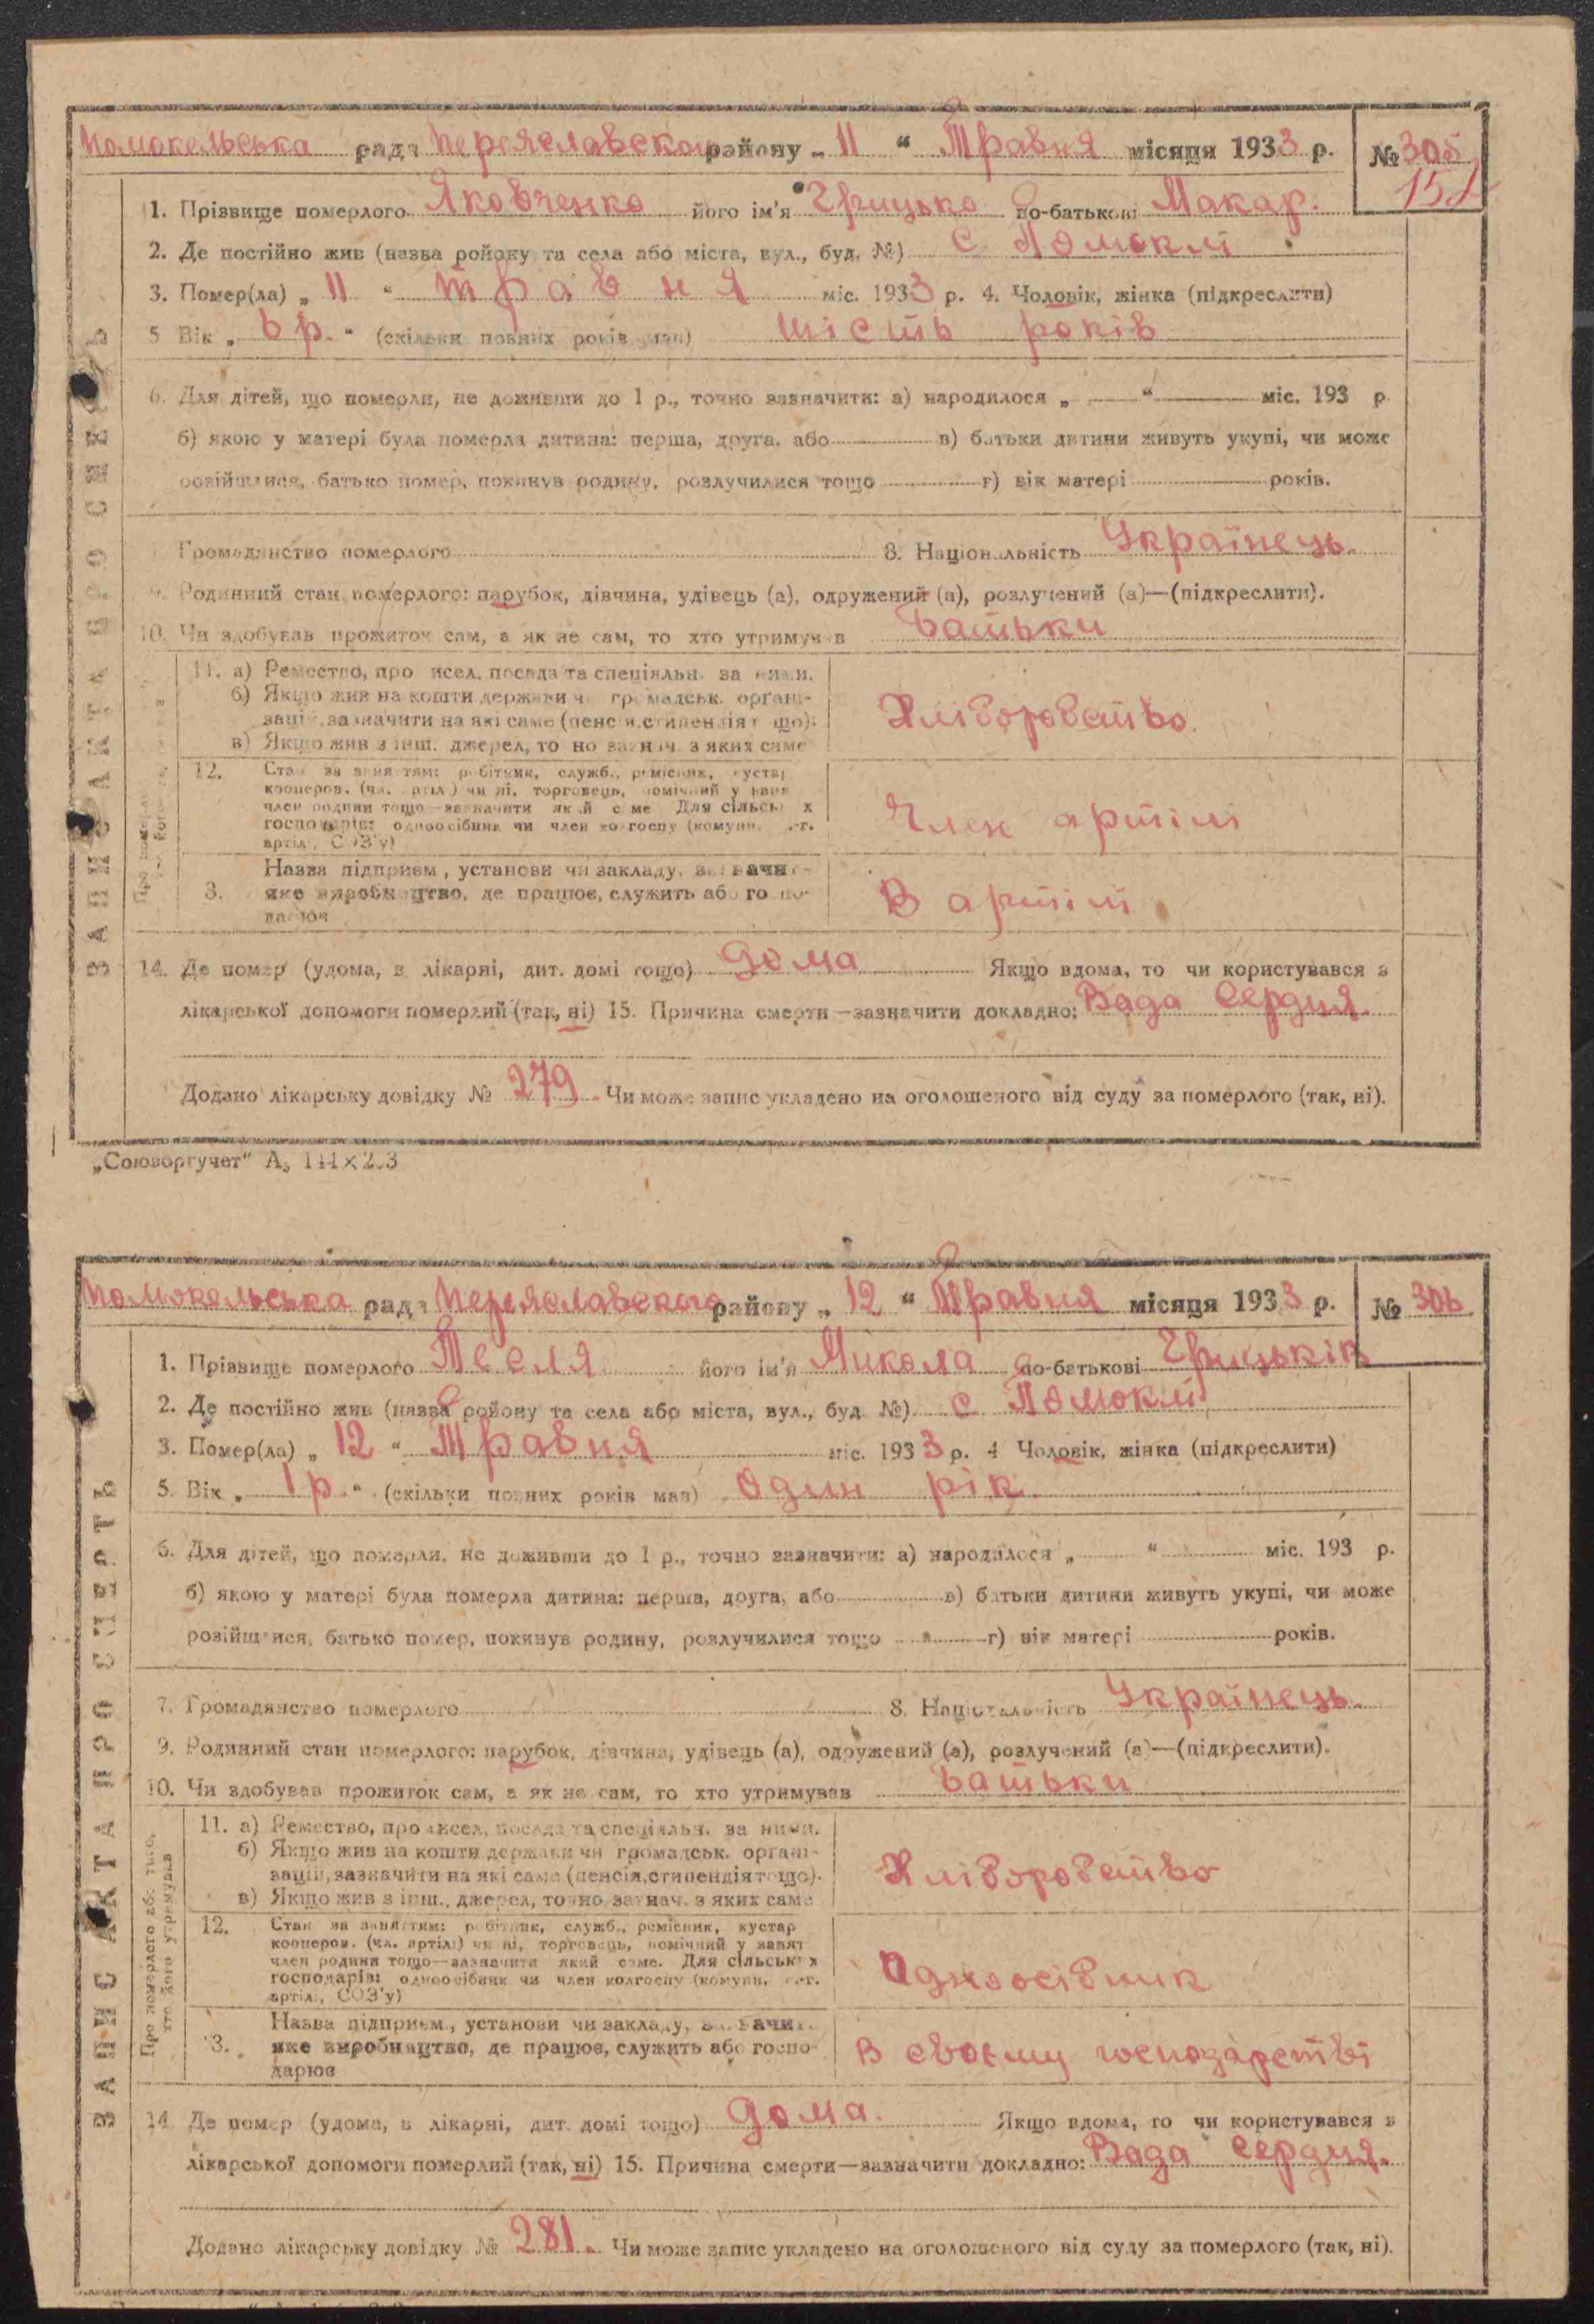 Помокельська рада Переяславского району „ 11 “ Травня місяця 1933 р. № 305
151
1. Прізвище померлого Яковченко його ім'я Грицько по-батькові Макар.
2. Де постійно жив (назва ройону та села або міста, вул., буд. №) с. Помоклі
3. Помер(ла) „ 11 “ травня міс. 1933 р. 4. Чоловік, жінка (підкреслити)
5 Вік „ 6 р. “ (скільки повних років мав) шість років
6. Для дітей, що померли, не доживши до 1 р., точно зазначити: а) народилося „ “ міс. 193 р
б) якою у матері була померла дитина: перша, друга, або в) батьки дитини живуть укупі, чи може
розійшлися, батько помер, покинув родину, розлучилися тощо г) вік матері років.
Громадянство померлого 8. Національність Українець.
9. Родинний стан померлого: парубок, дівчина, удівець (а), одружений (а), розлучений (а)—(підкреслити).
10. Чи здобував прожиток сам, а як не сам, то хто утримував Батьки
11. а) Ремество, про исел, посада та спеціяльн. за ними.
б) Якщо жив на кошти держави чи громадськ. органі-
зації, зазначити на які саме (пенсія, стипендія тощо):
в) Якщо жив з інш. джерел, то но зазнач. з яких саме
Хліборобство.
12. Стан за заняттям: робітник, служб., ремісник, кустар
кооперов. (чл. артіл.) чи ні, торговець, помічний у занят
член родини тощо—зазначити який саме. Для сільськ х
господарів: одноосібник чи член колгоспу (комуни, с.-г.
артілі, СОЗ'у)
Член артілі
3. Назва підприєм., установи чи закладу, зазначит-
яке виробництво, де працює, служить або госпо-
дарює
В артілі
14. Де помер (удома, в лікарні, дит. домі тощо) дома Якщо вдома, то чи користувався з
лікарської допомоги померлий (так, ні) 15. Причина смерти—зазначити докладно: Вада Сердця.
Додано лікарську довідку № 279. Чи може запис укладено на оголошеного від суду за померлого (так, ні).
ЗАПИС АКТА ПРО СМЕРТЬ
„Союзоргучет“ А₅ 144×203
Помокельська рада Переяславского району „ 12 “ Травня місяця 1933 р. № 306.
1. Прізвище померлого Тесля його ім'я Микола по-батькові Грицьків
2. Де постійно жив (назва ройону та села або міста, вул., буд. №) с Помоклі
3. Помер(ла) „ 12 “ Травня міс. 1933 р. 4 Чоловік, жінка (підкреслити)
5. Вік „ 1 р. “ (скільки повних років мав) один рік.
6. Для дітей, що померли, не доживши до 1 р., точно зазначити: а) народилося „ “ міс. 193 р.
б) якою у матері була померла дитина: перша, друга, або в) батьки дитини живуть укупі, чи може
розійшлися, батько помер, покинув родину, розлучилися тощо г) вік матері років.
7. Громадянство померлого 8. Національність Українець.
9. Родинний стан померлого: парубок, дівчина, удівець (а), одружений (а), розлучений (а)—(підкреслити).
10. Чи здобував прожиток сам, а як не сам, то хто утримував Батьки
Про померлого або того, хто його утримував
11. а) Ремество, промисел, посада та спеціяльн. за ними.
б) Якщо жив на кошти держави чи громадськ. органі-
зацій, зазначити на які саме (пенсія, стипендія тощо).
в) Якщо жив з інш., джерел, точно зазнач. з яких саме
Хліборобство
12. Стан за заняттям: робітник, служб., ремісник, кустар
кооперов. (чл. артілі) чи ні, торговець, помічний у занят
член родини тощо—зазначити який саме. Для сільськ х
господарів: одноосібник чи член колгоспу (комуни, с.-г.
артілі, СОЗ'у)
Одноосібник
3. Назва підприєм., установи чи закладу, зазначит-
яке виробництво, де працює, служить або госпо-
дарює
В своєму господарстві
14 Де помер (удома, в лікарні, дит. домі тощо) дома. Якщо вдома, то чи користувався з
лікарської допомоги померлий (так, ні) 15. Причина смерти—зазначити докладно: Вада сердця.
Додано лікарську довідку № 281. Чи може запис укладено на оголошеного від суду за померлого (так, ні).
ЗАПИС АКТА ПРО СМЕРТЬ